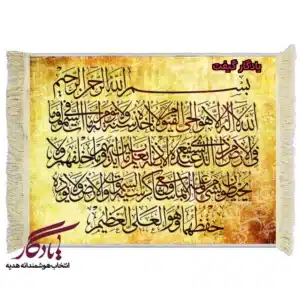 یادگار گیفت
بسم الله الرحمن الرحيم
الله لا اله الا هو الحي القيوم لا تأخذه سنة ولا نوم له ما في السموات وما
في الارض من ذا الذي يشفع عنده الا باذنه يعلم ما بين ايديهم وما خلفهم ولا
يحيطون بشيء من علمه الا بما شاء وسع كرسيه السموات والارض ولا يؤده
حفظهما وهو العلي العظيم
یادگار
انتخاب هوشمندانه هدیه